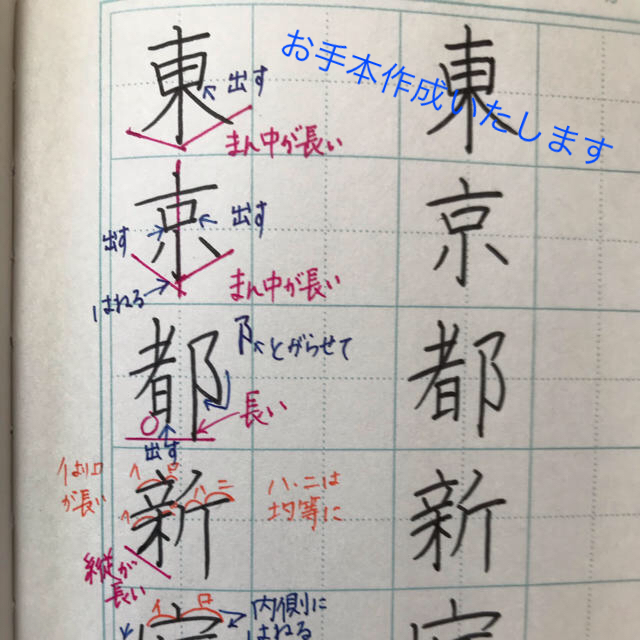 お手本作成いたします
東 東
出す
まん中が長い
京 京
出す
出す
まん中が長い
はねる
都 都
とがらせて
長い
出す
新 新
イはロ
が長い
イ ロ
ハ ニ
イ
ハ・ニは
均等に
縦が
長い
イ ロ
内側に
はねる